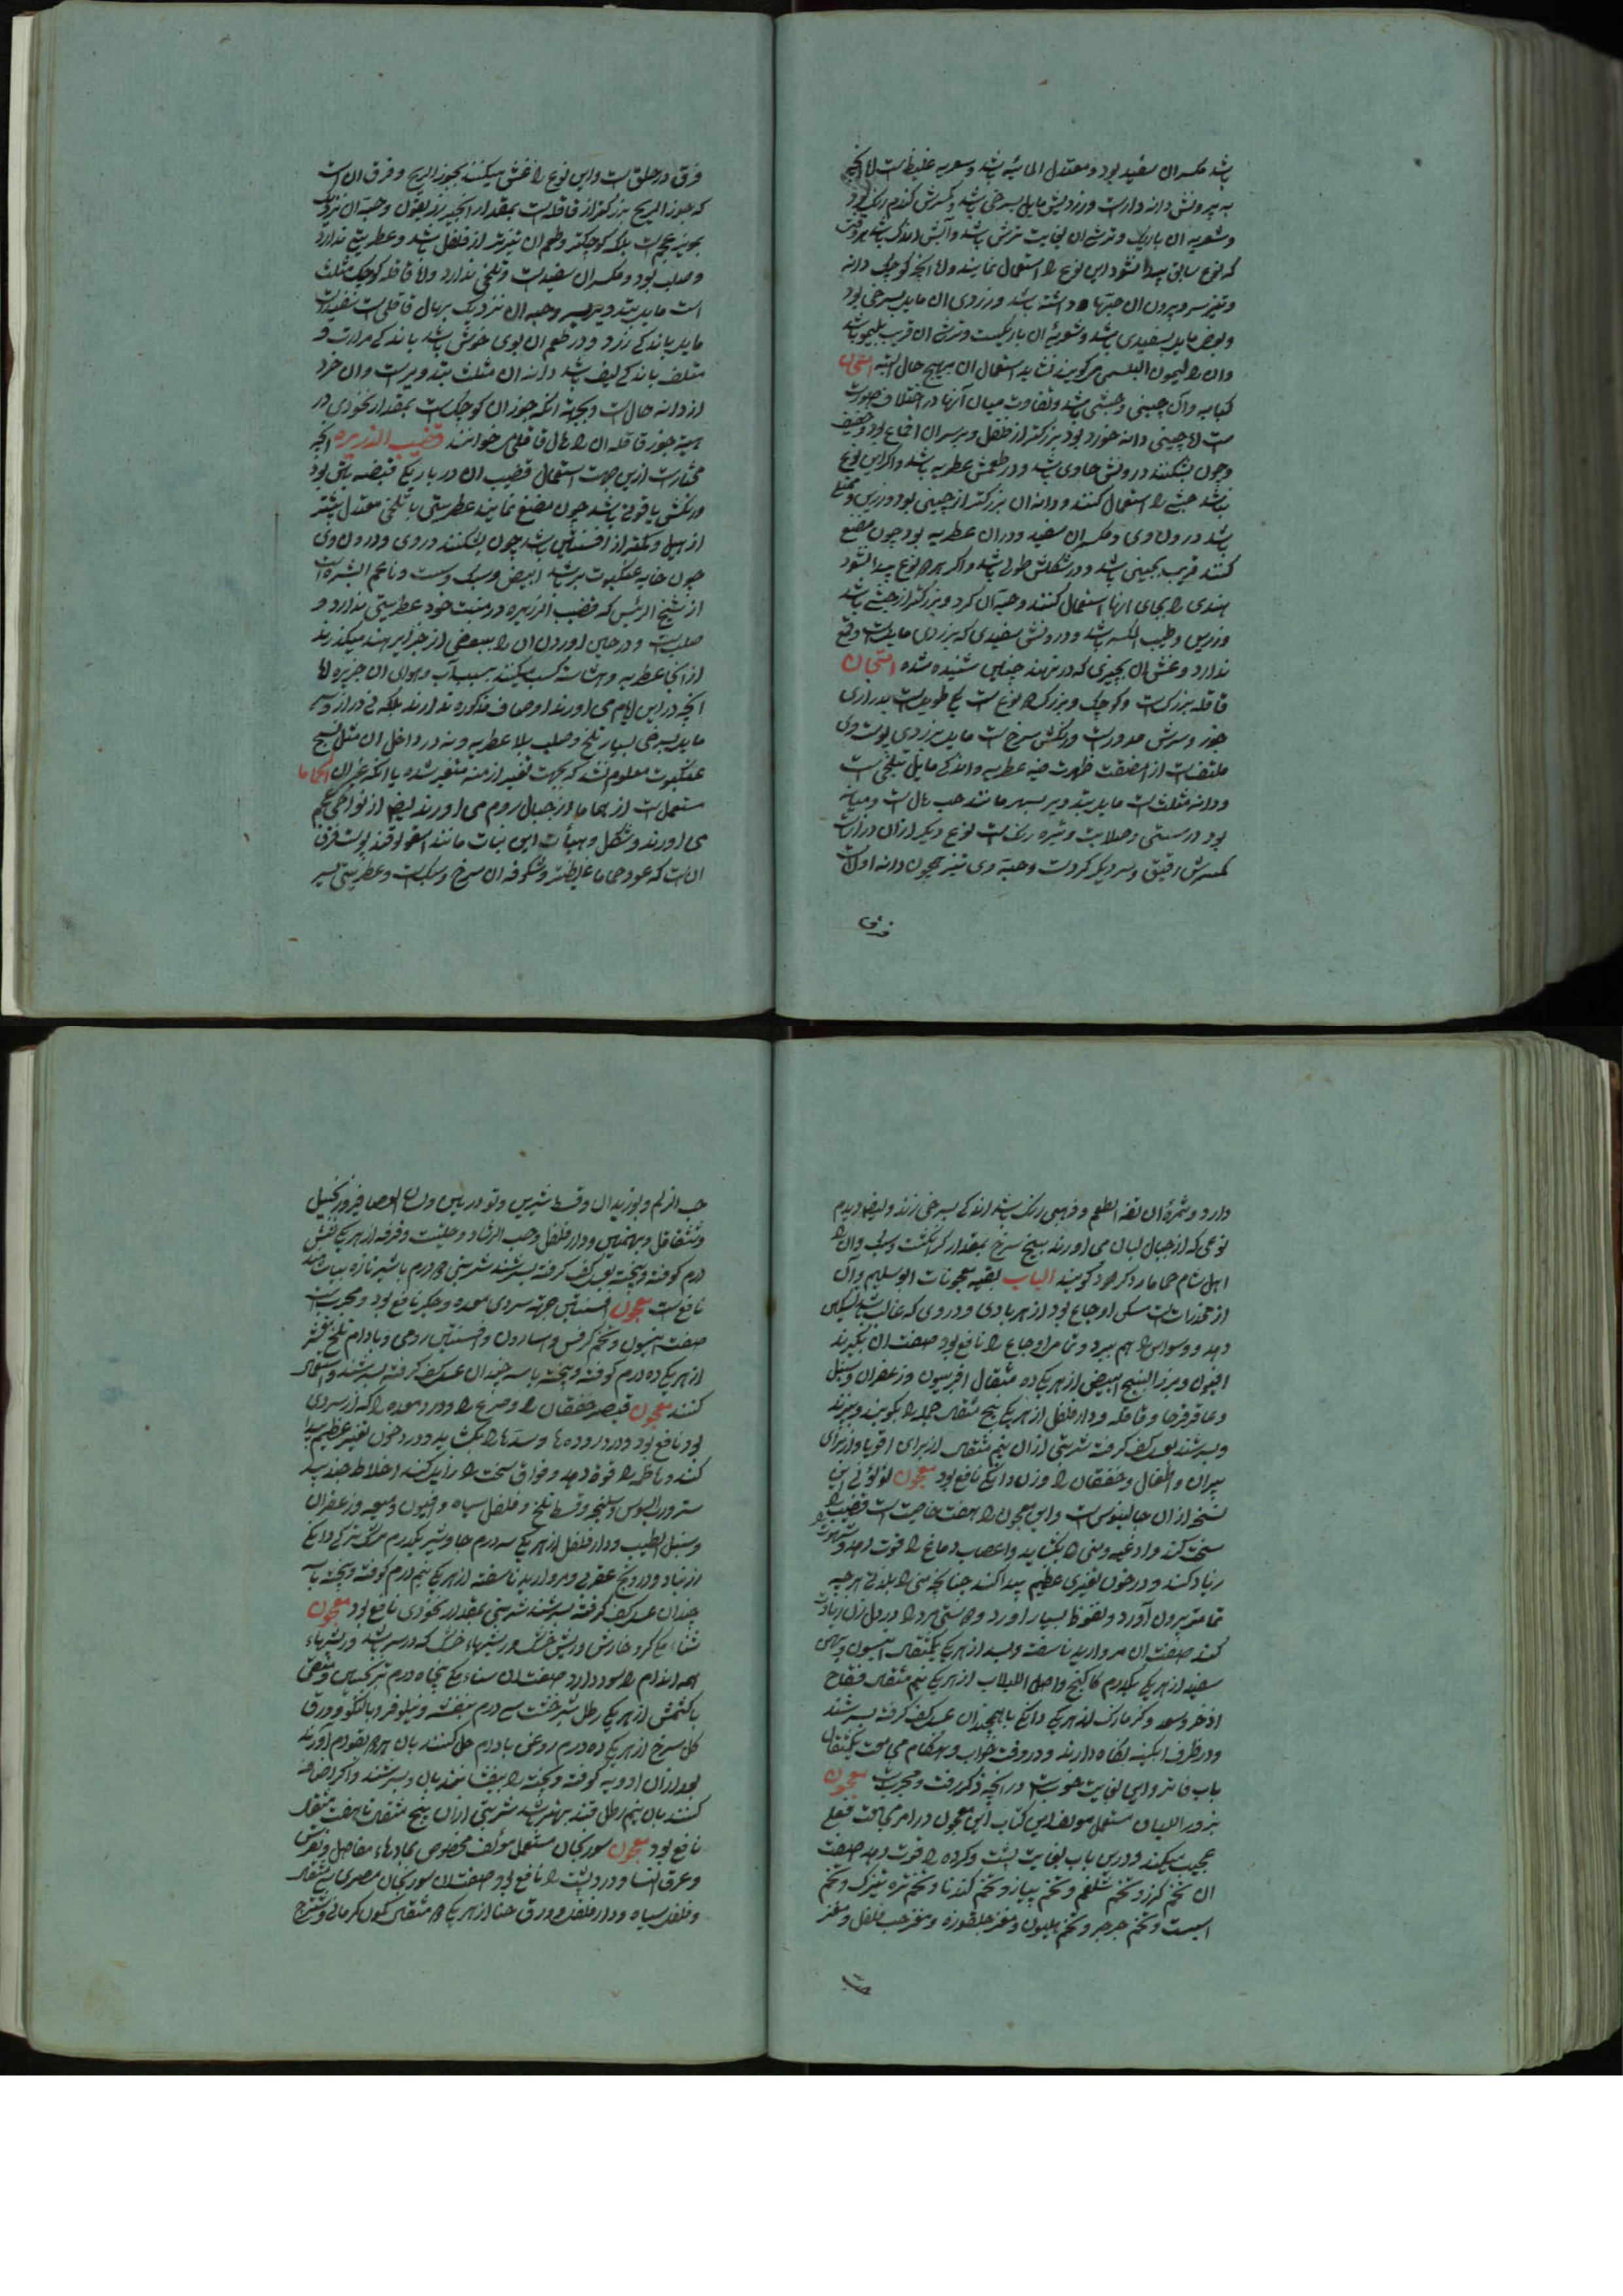 باشد مکسر ان سفید بود و معتدل المائیه باشد و سعریه غلیظ است اما انچه
به بیرونش دانه دارست و زردیش مایل بسرخی باشد و کسرش کندم رنک بود
و شعریه ان باریک و ترشی ان بغایت ترش باشد و آبش اندک باشد هر وقت
که نوع سابق پیدا نشود این نوع را استعمال نمایند و اما انچه کوچک دانه
و نیز سر و بیرون ان حبّها داشته باشد و زردی ان مایل بسرخی بود
و بعضی مایل بسفیدی باشد و شعریه ان باریکست و ترشی ان قریب بلیمو باشد
وان را لیمون البلسمی میکویند نشاید استعمال ان بهیچ حال البته امتحان
کبابه و آن چینی و حبشی باشد و تفاوت میان آنها در اختلاف صورت
است اما چینی دانه خورد بود بزرکتر از فلفل و بر سر ان اقماع بود و خفیف
و چون بشکنند درونش خاوی باشد و در طعمش عطریه باشد و اکر این نوع
نباشد حبشی را استعمال کنند و دانه ان بزرکتر از چینی بود و زرین و ممتلی
باشد درون وی و مکسر ان سفید و در ان عطریه بود چون مضغ
کنند قریب بچینی باشد و در شکلش طولی باشد و اکر هر دو نوع پیدا نشود
هندی را بجای انها استعمال کنند و حبه آن کرد و بزرکتر از حبشی باشد
و زرین و طیب المکسر باشد و درونش سفیدی که بزردی مایل است وقع
ندارد و غش ان بچیزی که در نهند چنین شنیده شده امتحان
قاقله بزرکست و کوچک و بزرک دو نوع است یکی طویل است بدرازی
جوز و سرش مدورست و رنکش سرخ است مایل بزردی پوست وی
ملتف است از امضغت ظهرت فیه عطریه و اندکی مایل بتلخی است
و دانه مثلث است مایل بتدویر بسر مانند حب هال است و میانه
بود در سستی و صلابت و تیره رنک است نوع دیکر از ان درازست
کسرش رقیق و سر دیکر کردست و حبه وی نیز همچون دانه اول است
فرق
فرق در حلق است و این نوع را غش میکنند بجوز الریح و فرق ان است
که جوز الریح بزرکتر از قاقله است بمقدار انجیر زیعول و حبه ان نزدیک
بمویز بحجم است بلکه کوچکتر و طعم ان تیزتر از فلفل باشد و عطریتی ندارد
و صلب بود و مکسر ان سفیدست و تلخی ندارد و اما قاقله کوچک مثلث
است مایل بتدویر یسیر و حبه ان نزدیک بهال قاقلی است سفیدست
مایل باندکی زرد و در طعم ان بوی خوش باشد باندکی مرارت و
متلف باندکی لیف باشد دانه ان مثلث بتدویرست و ان خرد
از دانه هال است و بجهة انکه جوز ان کوچکست بمقدار نخودی در
هیئة جوز قاقله ان را هال قاقلی خوانند قصب الذریره انچه
مختارست ازین جهت استعمال قضیب ان در باریکی قبضه نی بود
و رنکش یاقوتی باشد چون مضغ نمایند عطریتی با تلخی معتدل بیشتر
از هیل و کمتر از افسنتین باشد چون بشکنند در وی و درون وی
چون خانه عنکبوت بر باشد ابیض و سبک و سست و ناعم البشره است
از شیخ الرئیس که قضیب الذریره در منبت خود عطریتی ندارد و
صلبست و در حین اوردن ان را ببعضی از جزایر هند میکذرند
از انجا عطریه و هشاشه کسب میکند بسبب آب و هوای ان جزیره اما
انچه در این ایام می اورند اوصاف مذکوره ندارند بلکه نی دراز و
مایل بسرخی بسیار تلخ و صلب بلا عطریه و نه در داخل ان مثل نسیج
عنکبوت معلوم نشد که بجهت تغییر ازمنه متغیر شده یا انکه غیر ان الحماما
مستعمل است از بهاما از جبال روم می اورند ایضا از نواحی عجم
می اورند و شکل و هیأت این نبات مانند اسقولوقندریونست فرق
ان است که عود حماما غلیظتر و شکوفه ان سرخ و سبکست و عطریتی یسیر
دارد و ثمره ان تفه الطعم و ذهبی رنک باشد اندکی بسرخی زند و ایضا دیدم
نوعی که از جبال لبنان می اورند بیخ سرخ بمقدار کر انکشت و سبک وان را
اهل شام حماما رد کر هود کویند الباب بقیه معجونات ابو سلیم و آن
از مخدرات است مسکن اوجاع بود از هر بادی و دردی که غالب باشد تسکین
دهد و وسواس را هم ببرد و تمام اوجاع را نافع بود صفت ان بکیرند
افیون و بزر البنج ابیض از هر یک ده مثقال افربیون و زعفران و سنبل
و عاقرقرحا و قاقله و دارفلفل از هر یک پنج مثقال جمله را بکوبند و بیزند
و بسرشند بعسل کف کرفته شربتی از ان نیم مثقال از برای اقویا و از برای
پیران و اطفال و خفقان را وزن دانکی نافع بود معجون لؤلؤی این
نسخه از ان جالینوس است و این معجون را هفت خاصیت است قضیب را
سخت کند و ادعیه منی را بکشاید و اعصاب دماغ را قوت دهد و شهوت
زیاد کند و در خون تغیری عظیم پیدا کند چنانچه منی را بلذتی هرچه
تمامتر بیرون آورد و نعوظ بسیار اورد و دوستی مرد را در دل زن زیادت
کند صفت ان مروارید ناسفته و بسد از هر یک یکمثقال انیسون و بهمن
سفید از هر یک یکدرم کاکنج و اصل اللبلاب از هر یک نیم مثقال فقاح
اذخر و سعد و کزمازک از هر یک دانکی با همچندان عسل کف کرفته بسرشند
و در ظرف ابکینه نکاه دارند و در وقت خواب و هنکام مجامعت یکمثقال
باب فاتر و این بغایت خوبست و از انچه ذکر رفت و مجربست معجون
بزور اللبیان مستعمل مولف این کتاب این معجون در امر مجامعت فعلی
عجیب میکند و درین باب بغایت پشت و کرده را قوت دهد صفت
ان تخم کزر و تخم شلغم و تخم پیاز و تخم کندنا و تخم تره تیزک و تخم
اسپست و تخم جرجر و تخم هلیون و مغز جلغوزه و مغز حب فلفل و مغز
حب
حب الزلم و بوزیدان و قسط شیرین و تودریین و لسان العصافیر و زنجبیل
و شقاقل و بهمنین و دارفلفل و حب الرشاد و حلتیت و قرفه از هر یک شش
درم کوفته و بیخته بعسل کف کرفته بسرشند شربتی دو درم با شیر تازه بغایت
نافع است معجون افسنتین جهة سردی معده و جکر نافع بود و مجربست
صفت انیسون و تخم کرفس و اسارون و افسنتین رومی و بادام تلخ مقشر
از هر یک ده درم کوفته و بیخته با سه چندان عسل کف کرفته بسرشند و استعمال
کنند معجون قیصر خفقان را و صرع را و درد معده را که از سردی
بود نافع بود و درد روده ها و سده ها را بکشاید و در خون تغیر عظیم پیدا
کند و باظمه را قوة دهد و فواق سخت را زایل کند اخلاط جندبید
ستر و رب السوس و سلیخه و قسط تلخ و فلفل سیاه و افیون و میعه و زعفران
و سنبل الطیب و دارفلفل از هر یک سه درم جاوشیر یکدرم مشک ترکی دانکی
زرنباد و درونج عقربی و مروارید ناسفته از هر یک نیم درم کوفته و بیخته با سه
چندان عسل کف کرفته بسرشند شربتی بمقدار نخودی نافع بود معجون
سناء مکی کر و خارش و ریش خشک و ریشهاء خشک که در سر باشد و ریشهاء
همه اندام را سود دارد صفت ان سناء مکی پنجاه درم ترنجبین و منقی
با کشمش از هر یک رطل شیرخشت سی درم بنفشه و نیلوفر و بالنکو و ورق
کل سرخ از هر یک ده درم روغن بادام حل کنند بان هر دو بقوام آورند
بعد از ان ادویه کوفته و بیخته را بیفشانند بان و بسرشند و اکر اضافه
کنند بان نیم رطل قند بهتر باشد شربتی از ان پنج مثقال تا هفت مثقال
نافع بود معجون سورنجان مستعمل مؤلف مخصوص بمادهاء مفاصل و نقرس
و عرق النسا و درد پشت را نافع بود صفت ان سورنجان مصری مثقال
و فلفل سیاه و دارفلفل و ورق حنا از هر یک دو مثقال کمون کرمانی و شیطرج